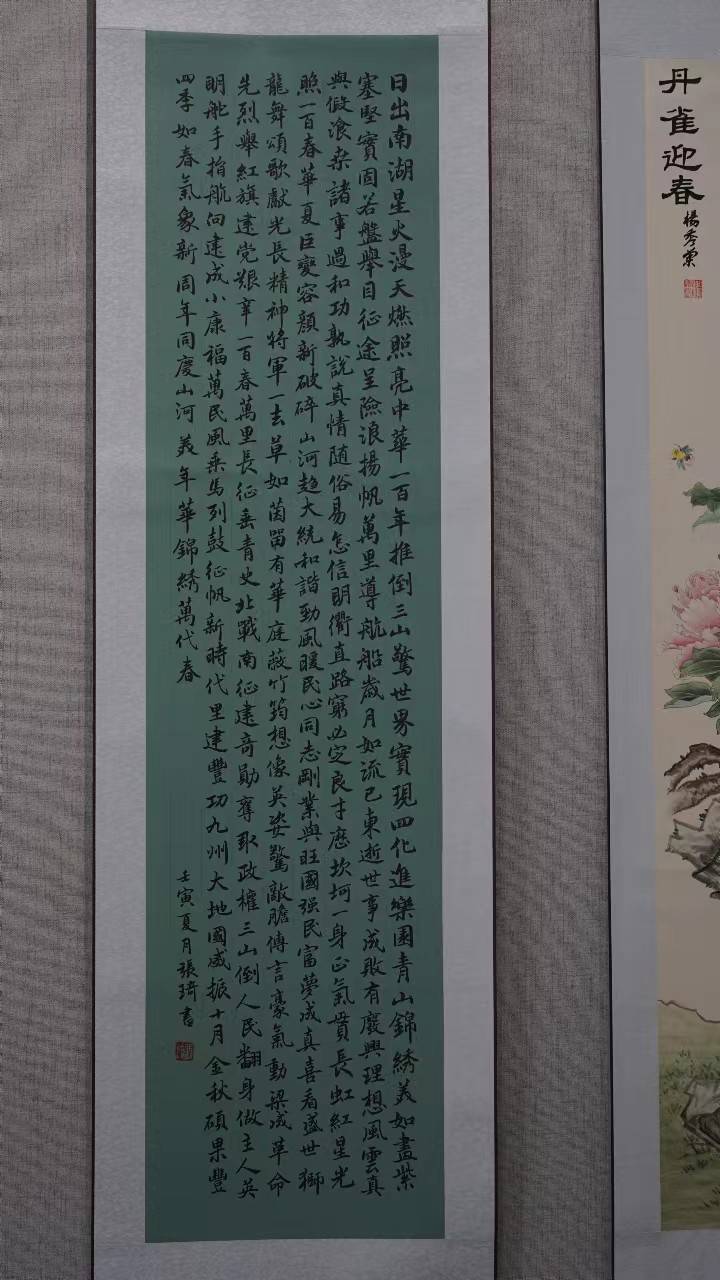 日出南湖星火漫天燃照亮中華一百年推倒三山驚世界實現四化進樂園青山錦綉美如畫紫
塞堅實固若盤舉目征途呈險浪揚帆萬里導航船歲月如流已東逝世事成敗有廢興理想風雲真
與假滄桑諸事過和功孰說真情随俗易怎信明衢直路窮必定良才歷坎坷一身正氣貫長虹紅星光
照一百春華夏巨變容顏新破碎山河趋大統和諧勁風暖民心同志剛業興旺國强民富夢成真喜看盛世獅
龍舞頌歌獻光長精神將軍一去草如茵留有華庭蔽竹筠想像英姿驚敵膽傳言豪氣動梁成革命
先烈舉紅旗建党艱辛一百春萬里長征垂青史北戰南征建奇勛奪取政權三山倒人民翻身做主人英
明舵手指航向建成小康福萬民風乘馬列鼓征帆新時代里建豐功九州大地國威振十月金秋碩果豐
四季如春氣象新周年同慶山河美年華錦綉萬代春
壬寅夏月張琦書
丹雀迎春
楊秀菊